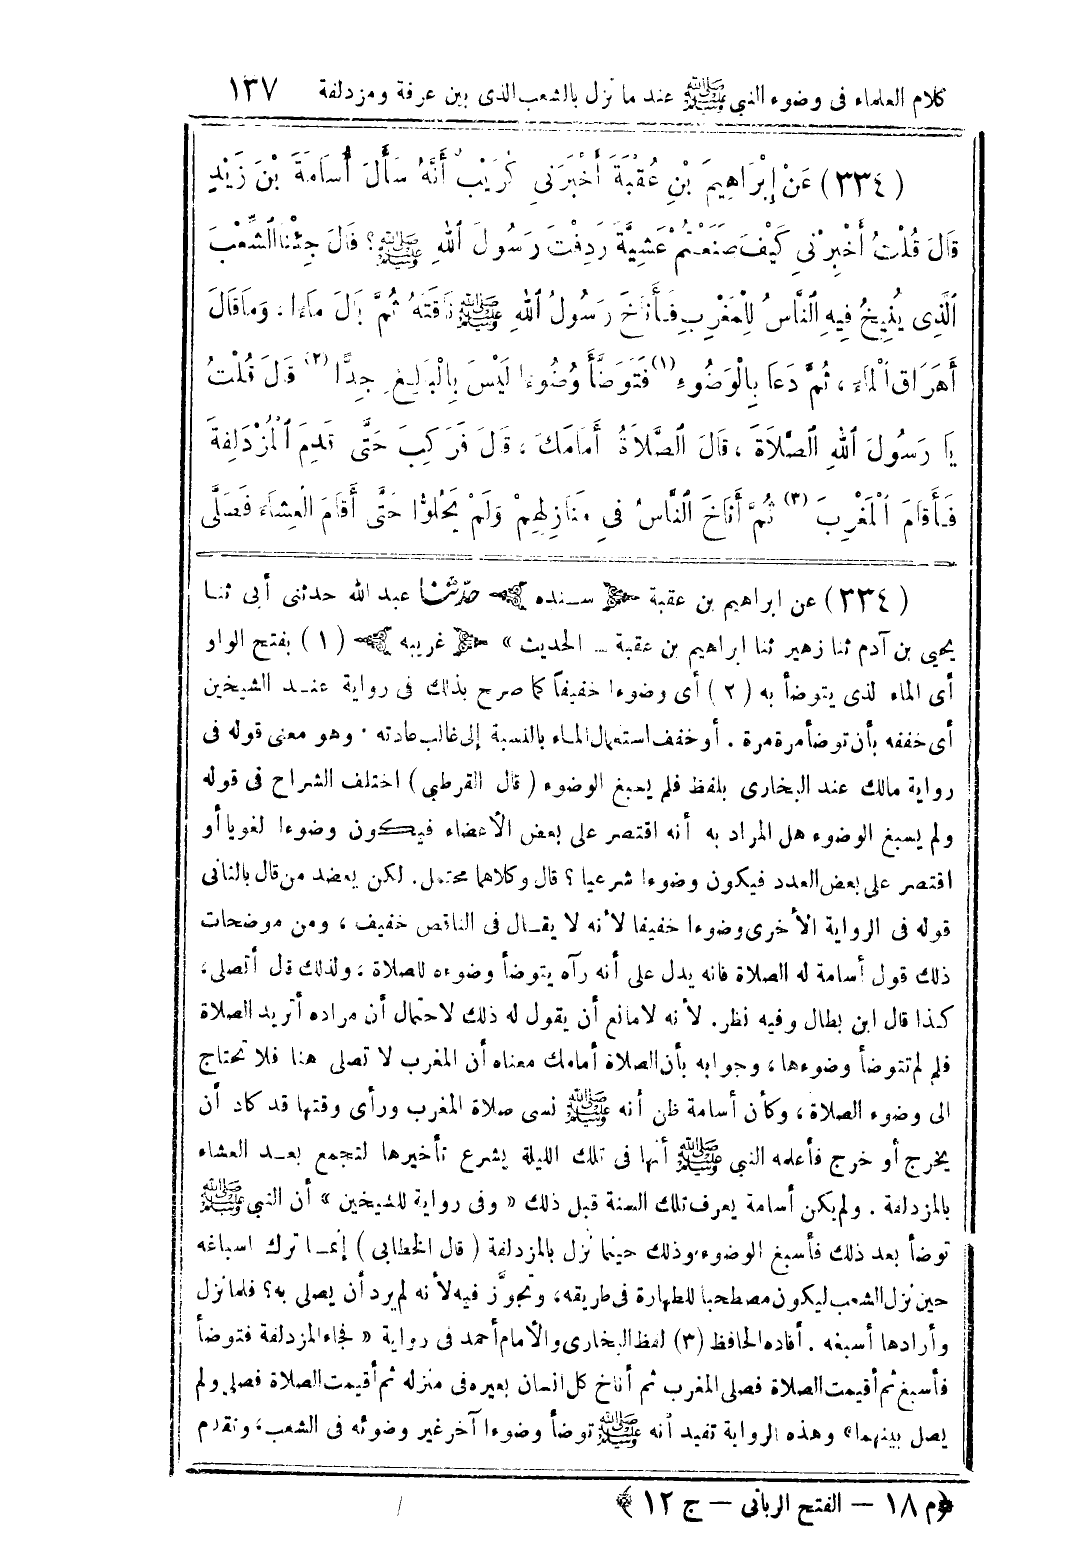 كلام العلماء فى وضوء النبى ﷺ عند ما نزل بالشعب الذى بين عرفة ومزدلفة ١٣٧
(٣٣٤) عَنْ إِبْرَاهِيمَ بْنِ عُقْبَةَ أَخْبَرَنِي كُرَيْبٌ أَنَّهُ سَأَلَ أُسَامَةَ بْنَ زَيْدٍ
قَالَ قُلْتُ أَخْبِرْنِي كَيْفَ صَنَعْتُمْ عَشِيَّةَ رَدِفْتَ رَسُولَ اللهِ ﷺ؟ قَالَ جِئْنَا الشِّعْبَ
الَّذِى يُنِيخُ فِيهِ النَّاسُ لِلْمَغْرِبِ فَأَنَاخَ رَسُولُ اللهِ ﷺ نَاقَتَهُ ثُمَّ بَالَ مَاءً، وَمَا قَالَ
أَهْرَاقَ الْمَاءَ ، ثُمَّ دَعَا بِالْوَضُوءِ (١) فَتَوَضَّأَ وُضُوءًا لَيْسَ بِالْبَالِغِ جِدًّا (٢) قَالَ قُلْتُ
يَا رَسُولَ اللهِ الصَّلَاةَ ، قَالَ الصَّلَاةُ أَمَامَكَ ، قَالَ فَرَكِبَ حَتَّى قَدِمَ الْمُزْدَلِفَةَ
فَأَقَامَ الْمَغْرِبَ (٣) ثُمَّ أَنَاخَ النَّاسُ فِي مَنَازِلِهِمْ وَلَمْ يَحُلُّوا حَتَّى أَقَامَ الْعِشَاءَ فَصَلَّى
(٣٣٤) عن ابراهيم بن عقبة ﴿ سنده ﴾ حدّثنا عبد الله حدثنى أبى ثنا
يحيى بن آدم ثنا زهير ثنا ابراهيم بن عقبة ــ الحديث » ﴿ غريبه ﴾ (١) بفتح الواو
أى الماء الذى يتوضأ به (٢) أى وضوءا خفيفاً كما صرح بذلك فى رواية عند الشيخين
أى خففه بأن توضأ مرة مرة . أو خفف استعمال الماء بالنسبة إلى غالب عادته . وهو معنى قوله فى
رواية مالك عند البخارى بلفظ فلم يسبغ الوضوء ( قال القرطبى ) اختلف الشراح فى قوله
ولم يسبغ الوضوء هل المراد به أنه اقتصر على بعض الأعضاء فيكون وضوءا لغويا أو
اقتصر على بعض العدد فيكون وضوءا شرعيا ؟ قال وكلاهما محتمل. لكن يعضد من قال بالثانى
قوله فى الرواية الأخرى وضوءا خفيفا لأنه لا يقال فى الناقص خفيف ، ومن موضحات
ذلك قول أسامة له الصلاة فانه يدل على أنه رآه يتوضأ وضوءه للصلاة ، ولذلك قال أتصلى،
كذا قال ابن بطال وفيه نظر. لأنه لا مانع أن يقول له ذلك لاحتمال أن مراده أتريد الصلاة
فلم لم تتوضأ وضوءها ، وجوابه بأن الصلاة أمامك معناه أن المغرب لا تصلى هنا فلا تحتاج
الى وضوء الصلاة ، وكأن أسامة ظن أنه ﷺ نسى صلاة المغرب ورأى وقتها قد كاد أن
يخرج أو خرج فأعلمه النبى ﷺ أنها فى تلك الليلة يشرع تأخيرها لتجمع بعد العشاء
بالمزدلفة . ولم يكن أسامة يعرف تلك السنة قبل ذلك « وفى رواية للشيخين » أن النبى ﷺ
توضأ بعد ذلك فأسبغ الوضوء، وذلك حينما نزل بالمزدلفة ( قال الخطابى ) إنما ترك اسباغه
حين نزل الشعب ليكون مصطحبا للطهارة فى طريقه، وتجوَّز فيه لأنه لم يرد أن يصلى به؟ فلما نزل
وأرادها أسبغه . أفاده الحافظ (٣) لفظ البخارى والأمام أحمد فى رواية « فجاء المزدلفة فتوضأ
فأسبغ ثم أقيمت الصلاة فصلى المغرب ثم أناخ كل انسان بعيره فى منزله ثم أقيمت الصلاة فصلى ولم
يصل بينهما » وهذه الرواية تفيد أنه ﷺ توضأ وضوءا آخر غير وضوئه فى الشعب، وتقدم
﴿م ١٨ — الفتح الربانى — ج ١٢ ﴾